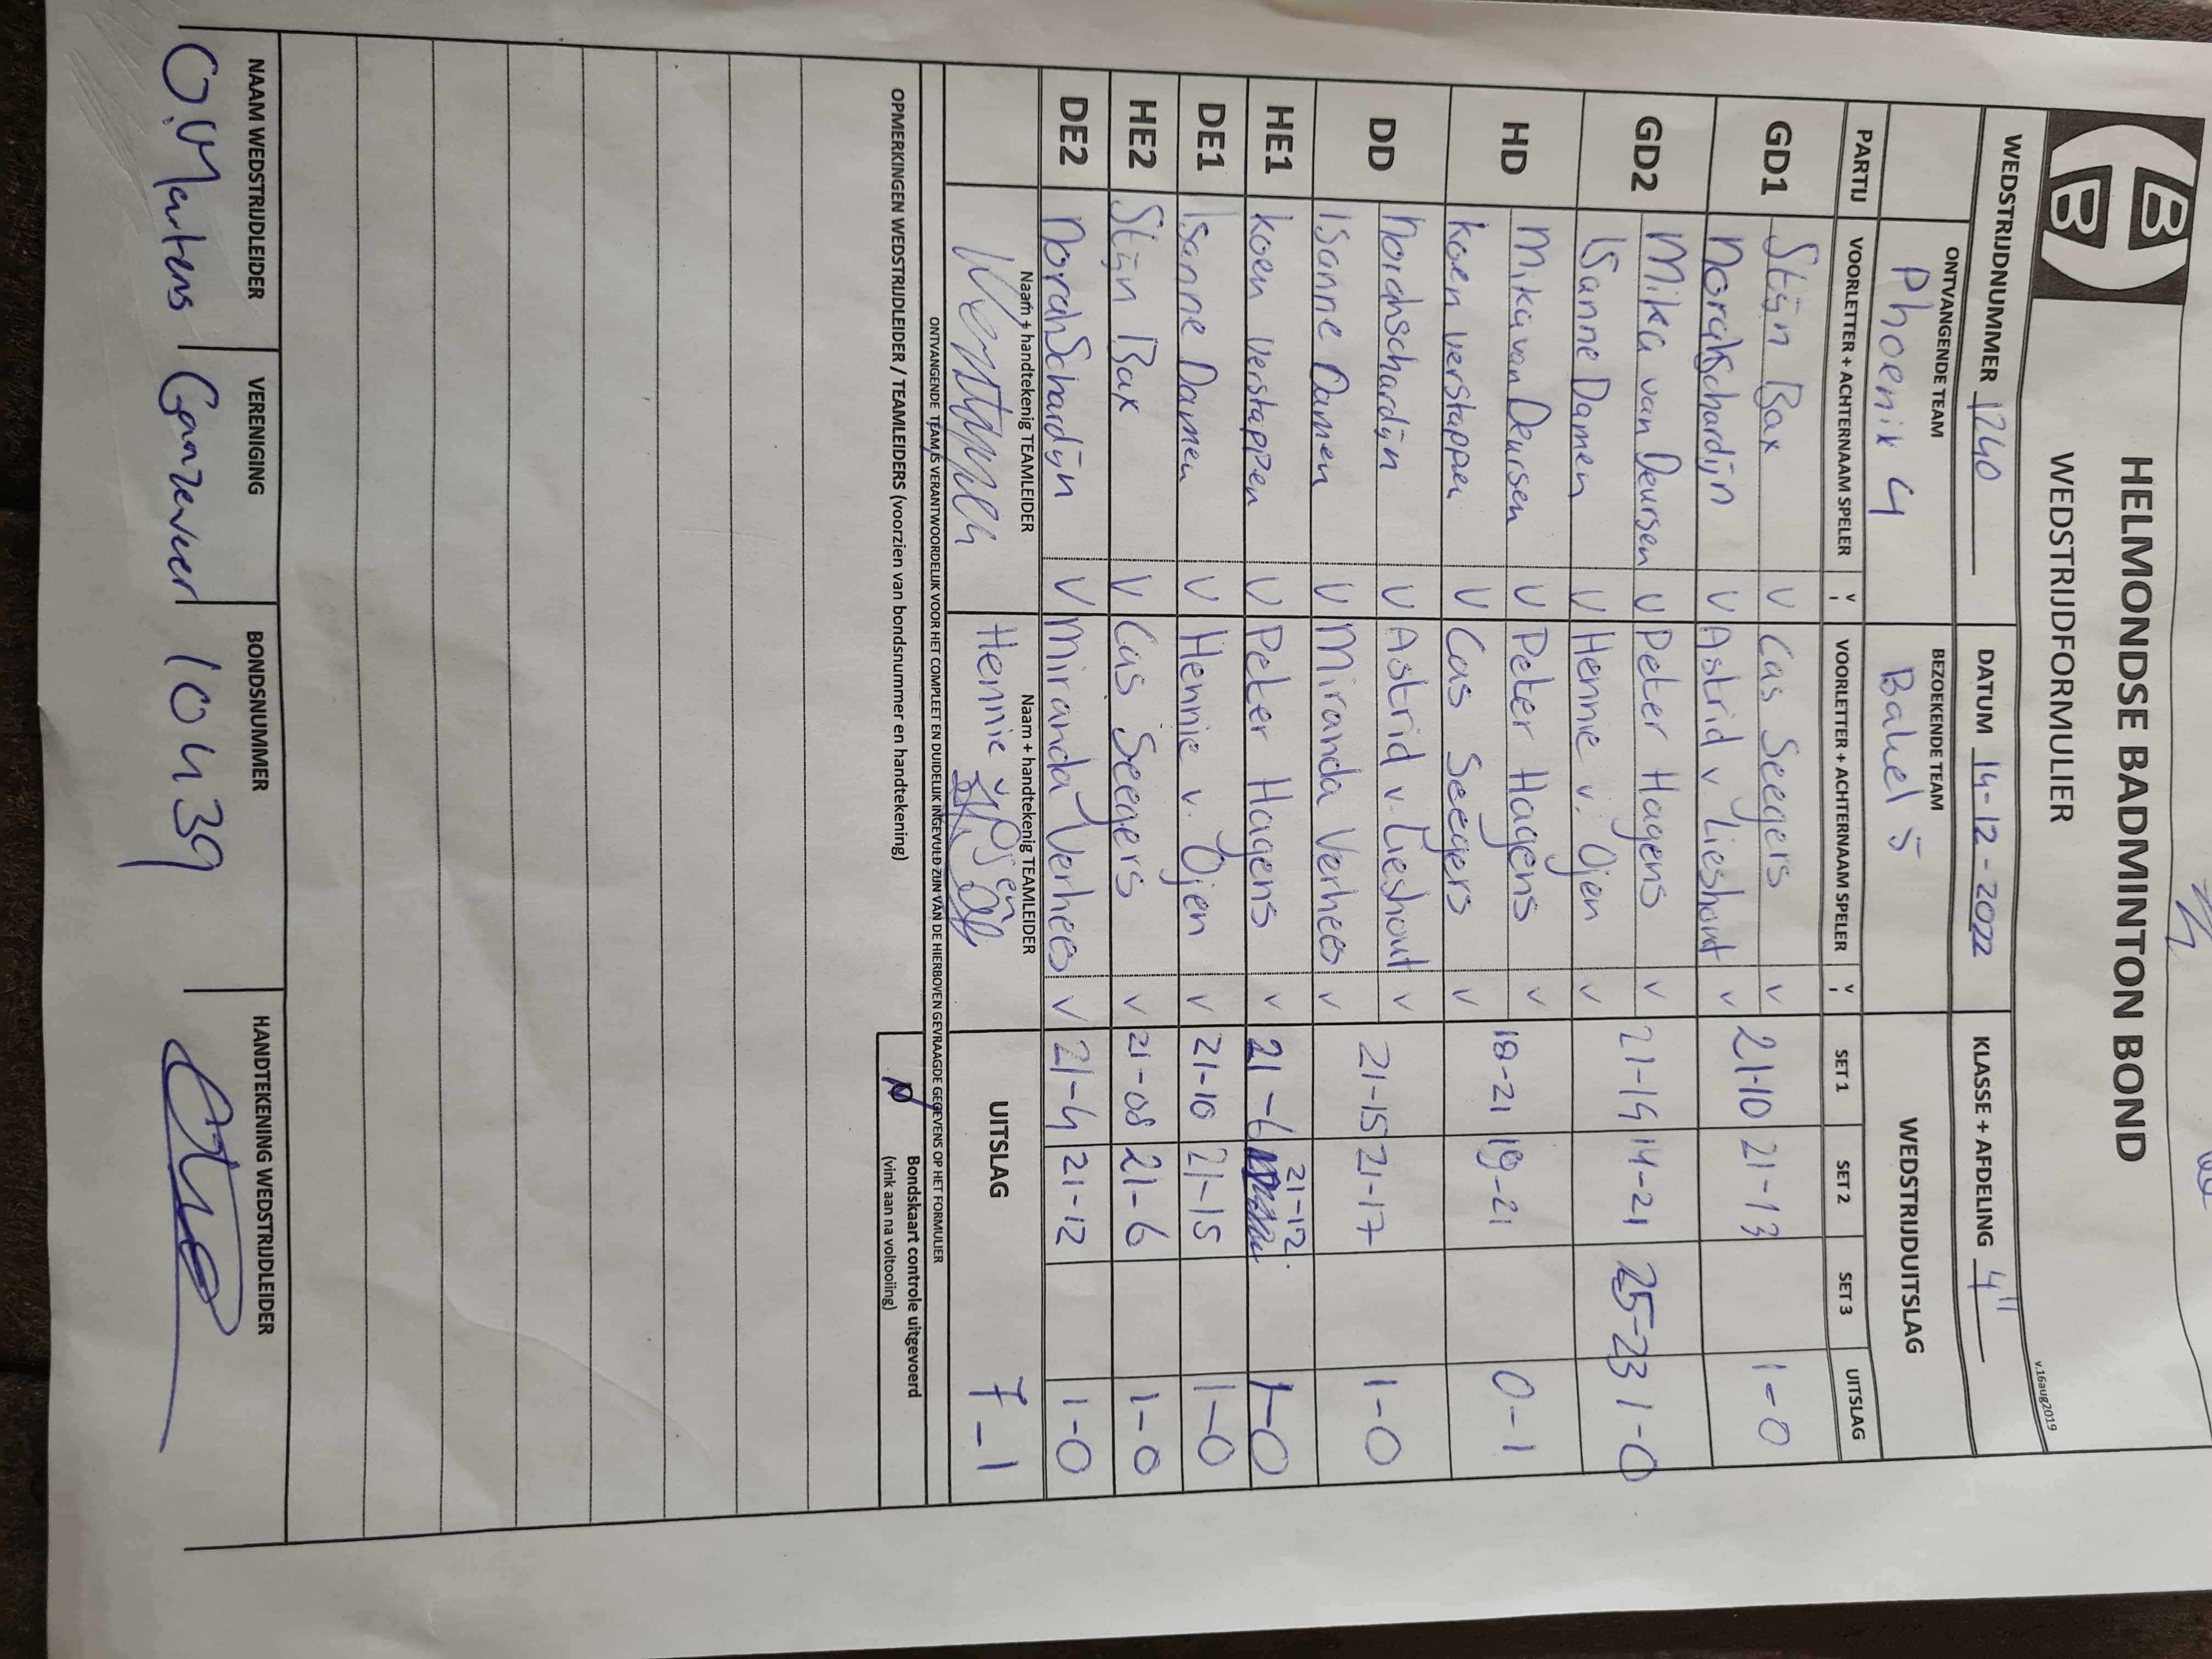 HELMONDSE BADMINTON BOND
WEDSTRIJDFORMULIER
v.16aug2019
WEDSTRIJDNUMMER 1240 DATUM 14-12-2022 KLASSE + AFDELING 4"
ONTVANGENDE TEAM BEZOEKENDE TEAM WEDSTRIJDUITSLAG
Phoenix 4 Bakel 5
PARTIJ VOORLETTER + ACHTERNAAM SPELER V VOORLETTER + ACHTERNAAM SPELER V SET 1 SET 2 SET 3 UITSLAG
GD1 Stijn Bax V Cas Seegers V 21-10 21-13 1-0
Norah Schardijn V Astrid v Lieshout V
GD2 Mika van Deursen V Peter Hagens V 21-19 14-21 25-23 1-0
Isanne Damen V Hennie v. Ojen V
HD Mika van Deursen V Peter Hagens V 18-21 19-21 0-1
Koen Verstappen V Cas Seegers V
DD Norah Schardijn V Astrid v. Lieshout V 21-15 21-17 1-0
Isanne Damen V Miranda Verhees V
HE1 Koen Verstappen V Peter Hagens V 21-6 21-12 1-0
DE1 Isanne Damen V Hennie v. Ojen V 21-10 21-15 1-0
HE2 Stijn Bax V Cas Seegers V 21-08 21-6 1-0
DE2 Norah Schardijn V Miranda Verhees V 21-4 21-12 1-0
Naam + handtekenig TEAMLEIDER Naam + handtekenig TEAMLEIDER UITSLAG 7-1
Verstappen Hennie v Ojen
ONTVANGENDE TEAM IS VERANTWOORDELIJK VOOR HET COMPLEET EN DUIDELIJK INGEVULD ZIJN VAN DE HIERBOVEN GEVRAAGDE GEGEVENS OP HET FORMULIER
OPMERKINGEN WEDSTRIJDLEIDER / TEAMLEIDERS (voorzien van bondsnummer en handtekening)
Bondskaart controle uitgevoerd
(vink aan na voltooiing)
NAAM WEDSTRIJDLEIDER VERENIGING BONDSNUMMER HANDTEKENING WEDSTRIJDLEIDER
O. Martens Ganzeveer 10439